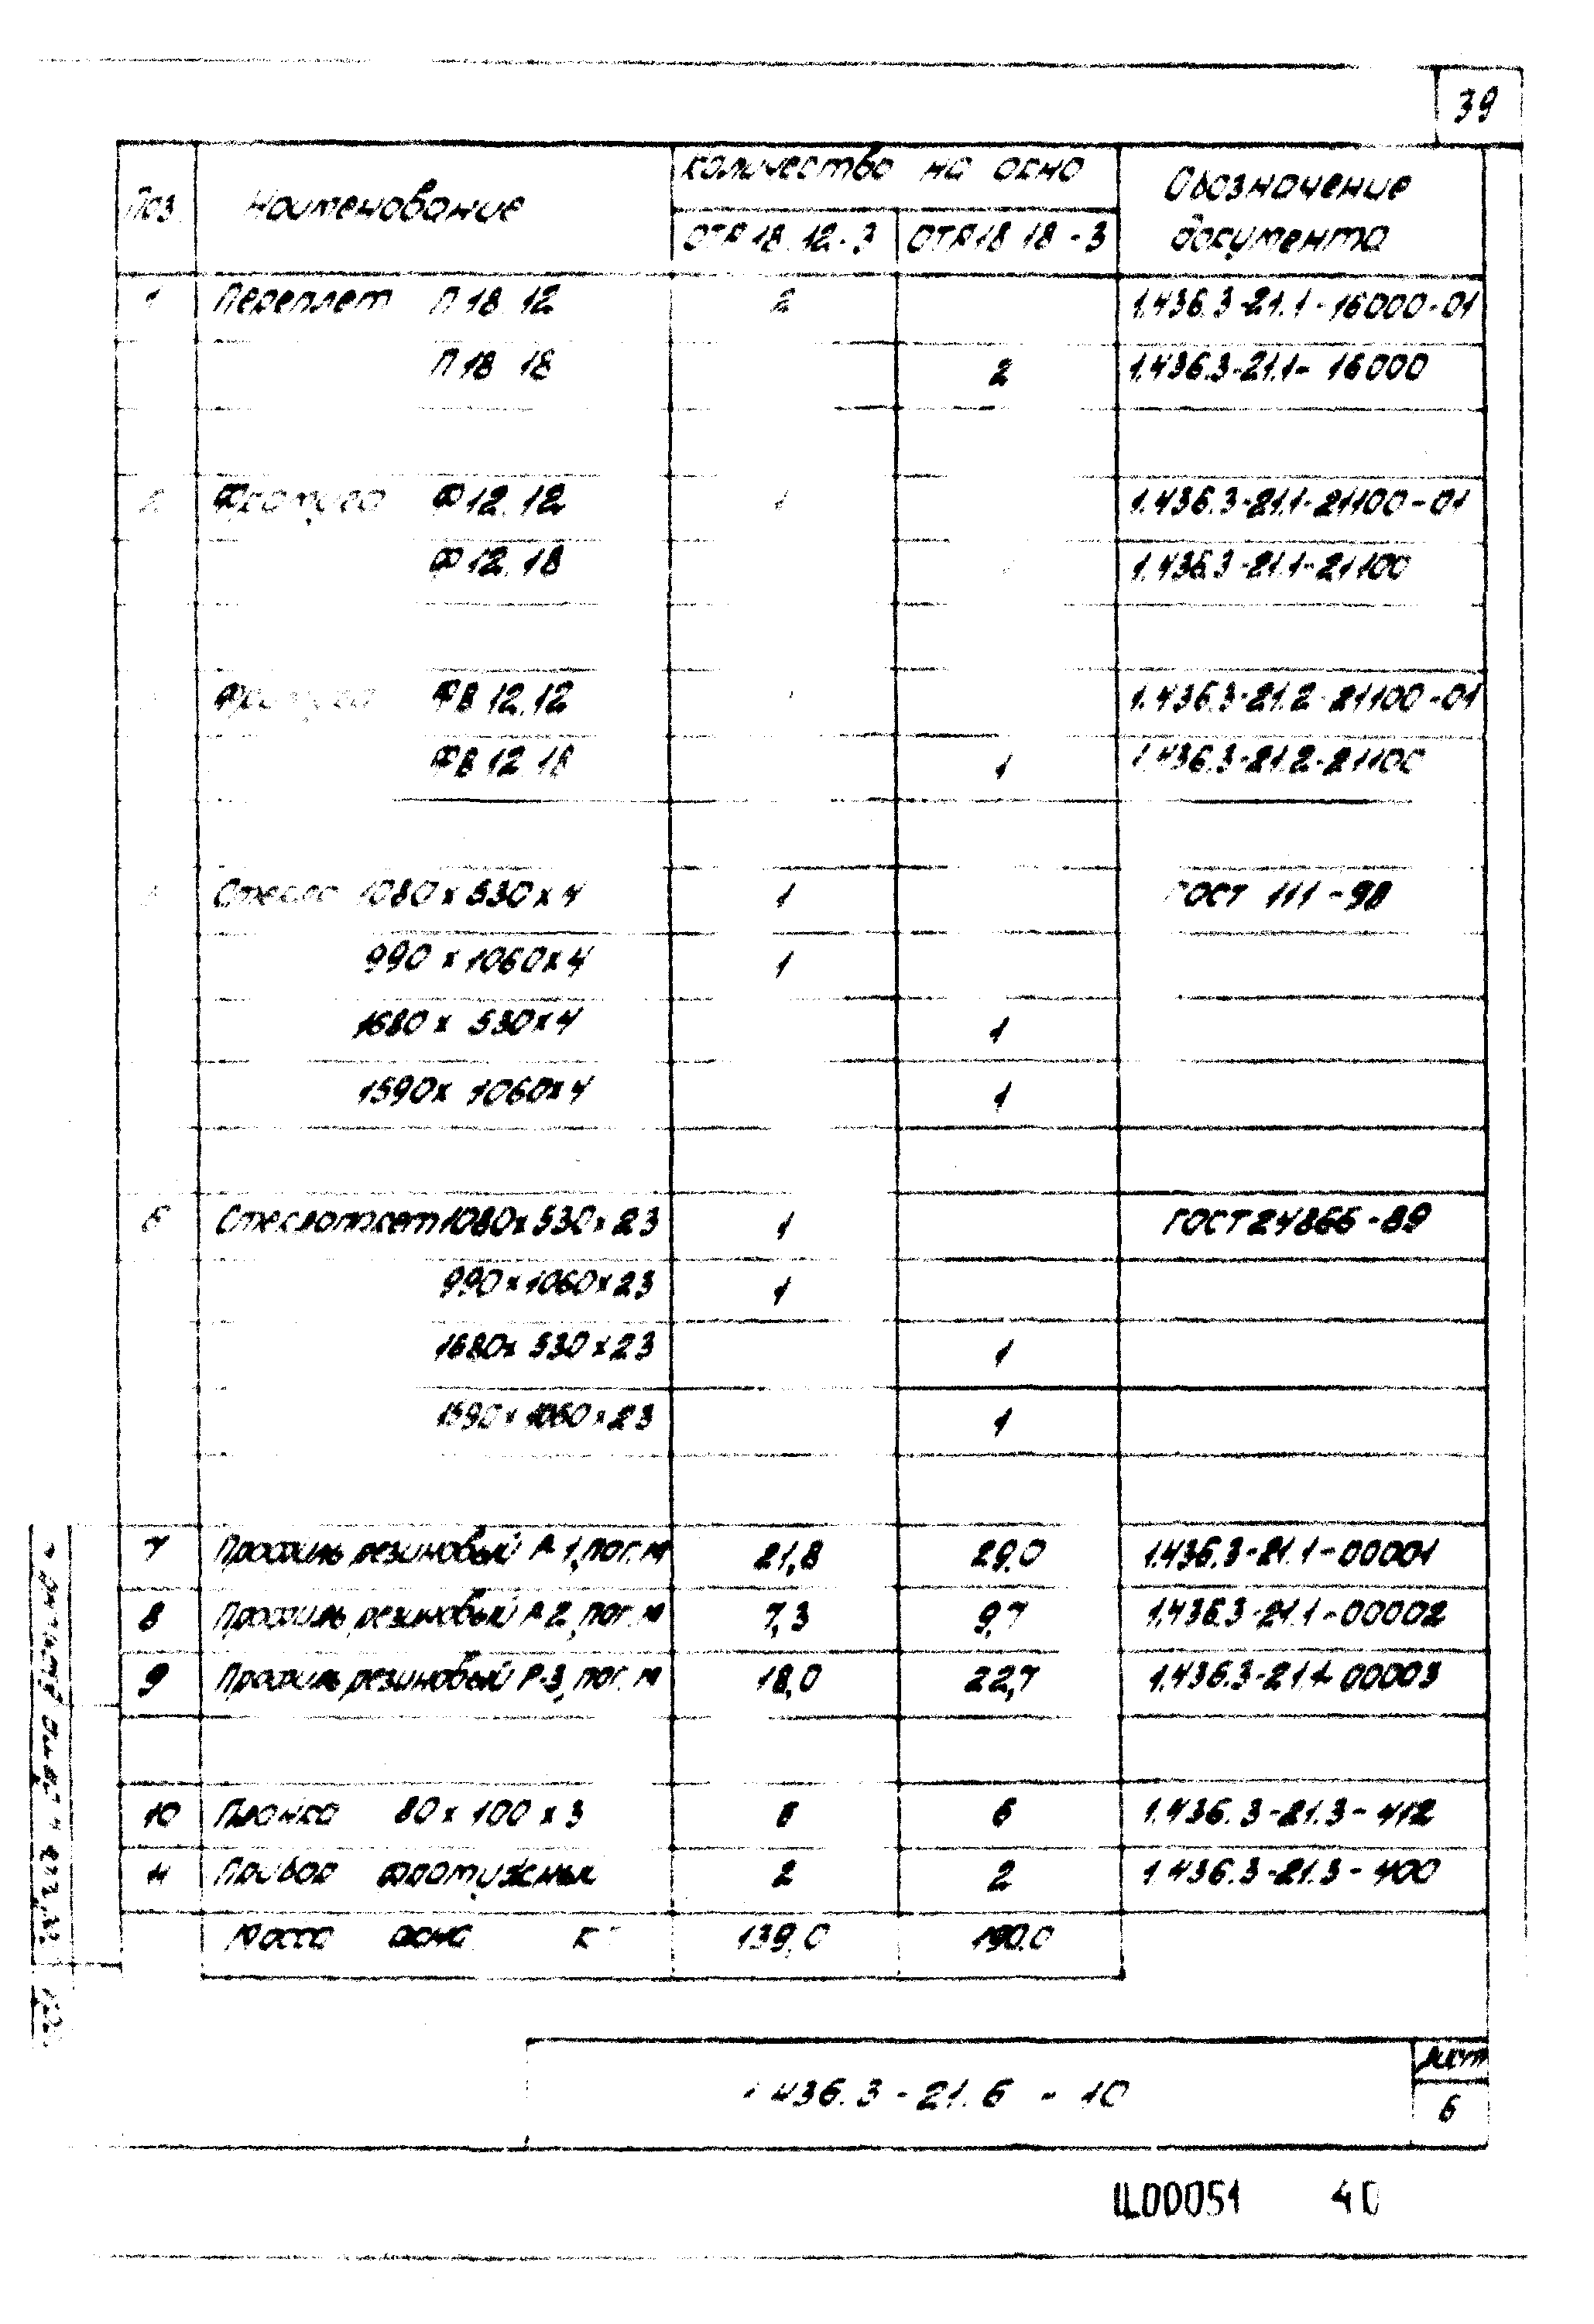 39
Поз. Наименование Количество на окно Обозначение документа
ОТД 18.12-3 ОТД 18.18-3
1 Переплет П 18.12 2 1.436.3-21.1-16000-01
П 18.18 2 1.436.3-21.1-16000
2 Фрамуга Ф 12.12 1 1.436.3-21.1-21100-01
Ф 12.18 1.436.3-21.1-21100
Фрамуга ФВ 12.12 1.436.3-21.2-21100-01
ФВ 12.18 1 1.436.3-21.2-21100
Стекло 1080х530х4 1 ГОСТ 111-98
990х1060х4 1
1680х530х4 1
1590х1060х4 1
6 Стеклопакет 1080х530х23 1 ГОСТ 24866-89
990х1060х23 1
1680х530х23 1
1590х1060х23 1
7 Профиль резиновый Р-1, пог. м 21,8 29,0 1.436.3-21.1-00001
8 Профиль резиновый Р-2, пог. м 7,3 9,7 1.436.3-21.1-00002
9 Профиль резиновый Р-3, пог. м 18,0 22,7 1.436.3-21.1-00003
10 Планка 80х100х3 6 6 1.436.3-21.3-412
11 Прибор фрамужный 2 2 1.436.3-21.3-400
Масса окна кг 139,0 190,0
1.436.3-21.6-10 Лист
6
Ц00051 40